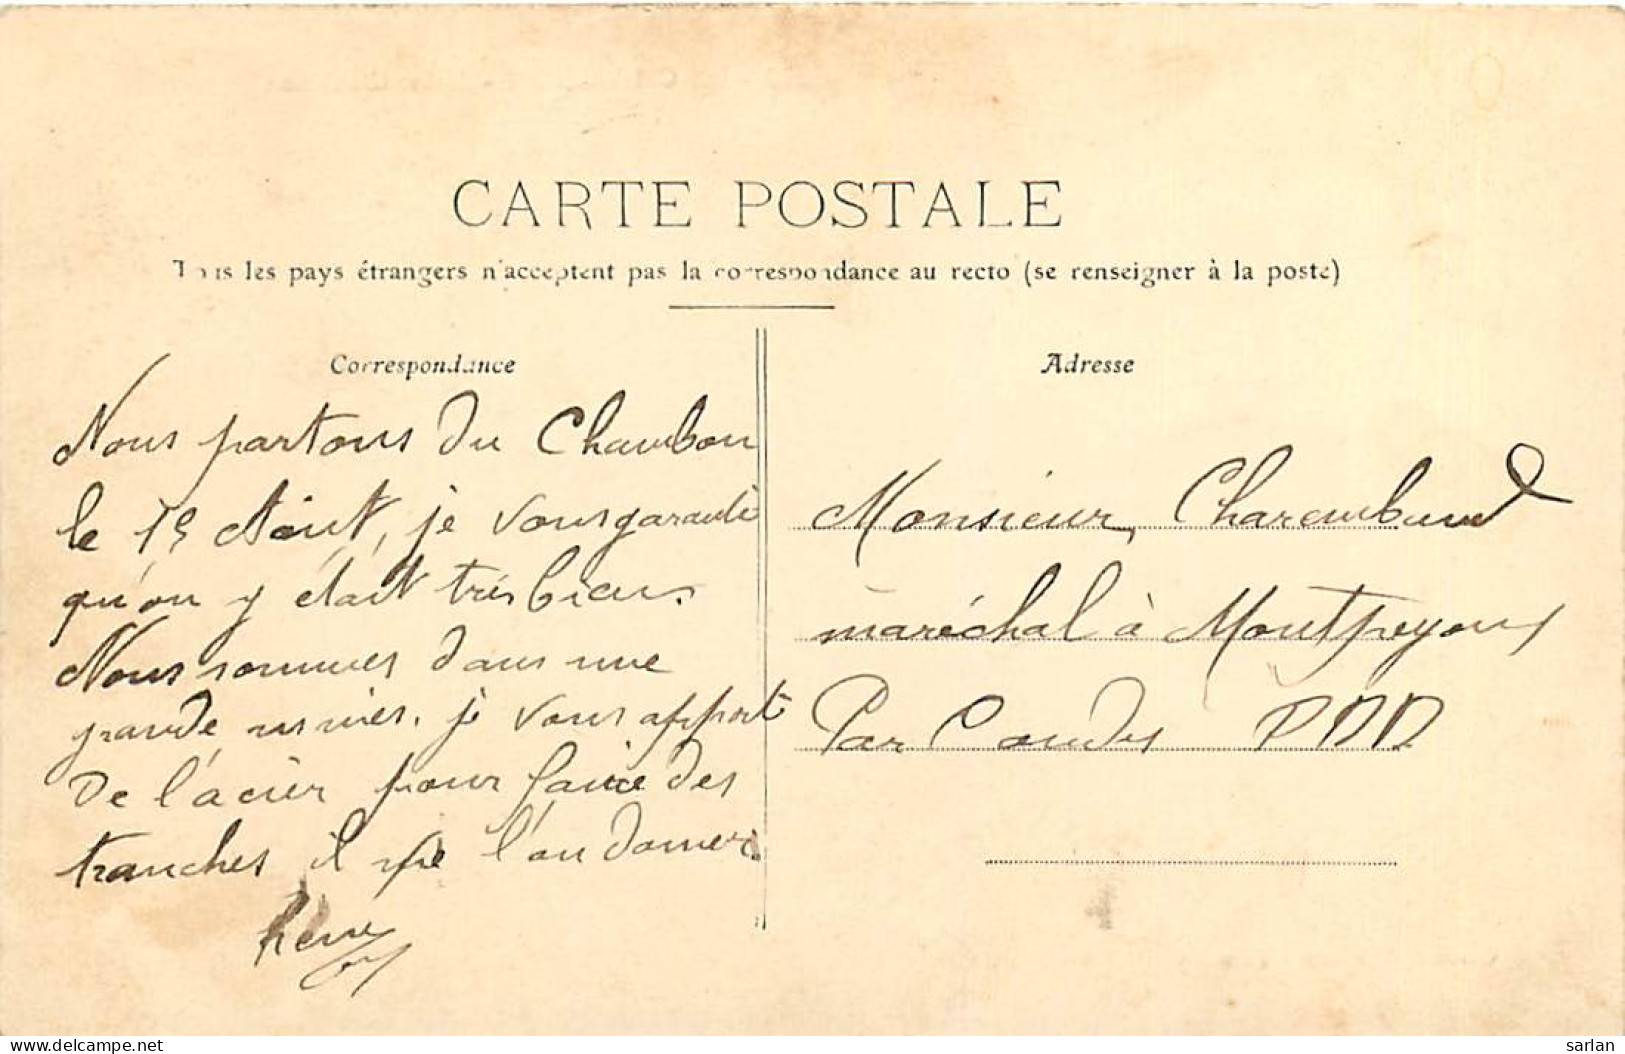 CARTE POSTALE
Tous les pays étrangers n'acceptent pas la correspondance au recto (se renseigner à la poste)
Correspondance
Nous partons du Chambon
le 15 Aôut, je vous garantie
qu'on y était très bien.
Nous sommes dans une
grande usines. je vous apporte
De l'acier pour faire des
tranches il me l'on donner.
Adresse
Monsieur
maréchal à
Par Coudes PDD
delcampe.net
sarlan